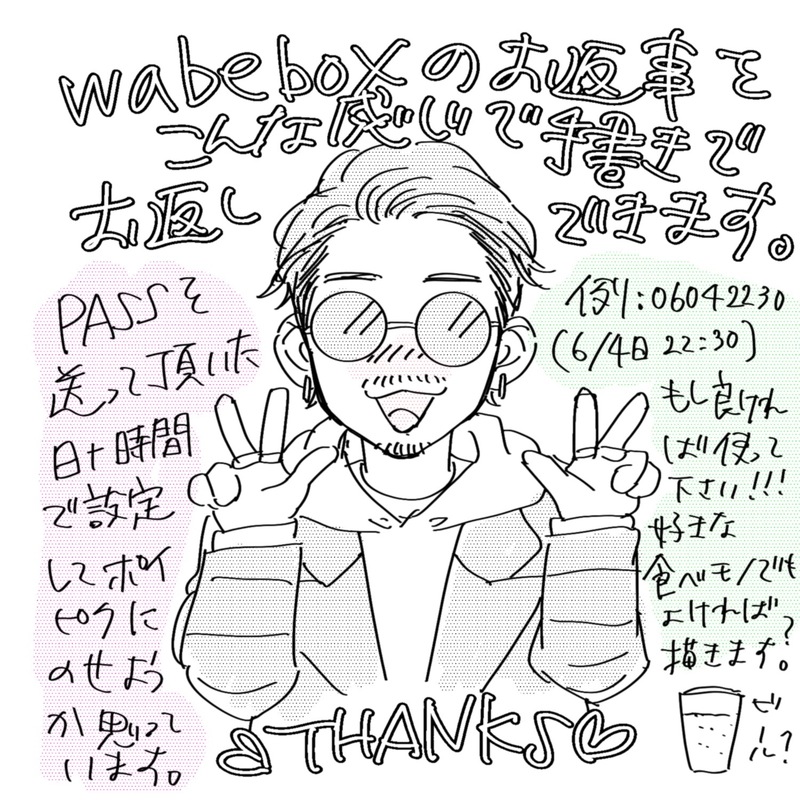 wabeboxのお返事を
こんな感じで手書きで
お返し
できます。
PASSを
送って頂いた
日+時間
で設定
してポイ
ピクに
のせよう
か思って
います。
例り:06042230
(6/4日 22:30)
もし良けれ
ば使って
下さい!!!
好きな
食べモノでも
よければ
描きます。?
ビール?
THANKS